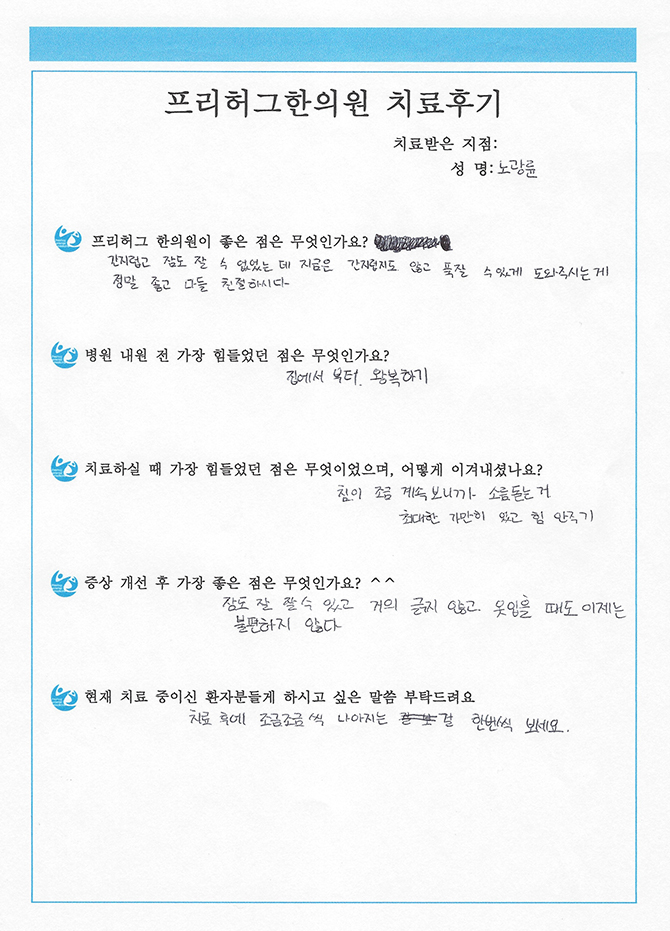 프리허그한의원 치료후기
치료받은 지점:
성 명: 노광륜
프리허그 한의원이 좋은 점은 무엇인가요?
간지럽고 잠도 잘 수 없었는 데 지금은 간지럽지도 않고 푹잘 수 있게 도와주시는게
정말 좋고 다들 친절하시다
병원 내원 전 가장 힘들었던 점은 무엇인가요?
집에서 부터 왕복하기
치료하실 때 가장 힘들었던 점은 무엇이었으며, 어떻게 이겨내셨나요?
침이 조금 계속보니까 소름돋는거
최대한 가만히 있고 힘 안주기
증상 개선 후 가장 좋은 점은 무엇인가요? ^^
잠도 잘 잘수 있고 거의 긁지 않고 옷입을 때도 이제는
불편하지 않다
현재 치료 중이신 환자분들게 하시고 싶은 말씀 부탁드려요
치료 후에 조금조금 씩 나아지는 걸 한번씩 보세요.